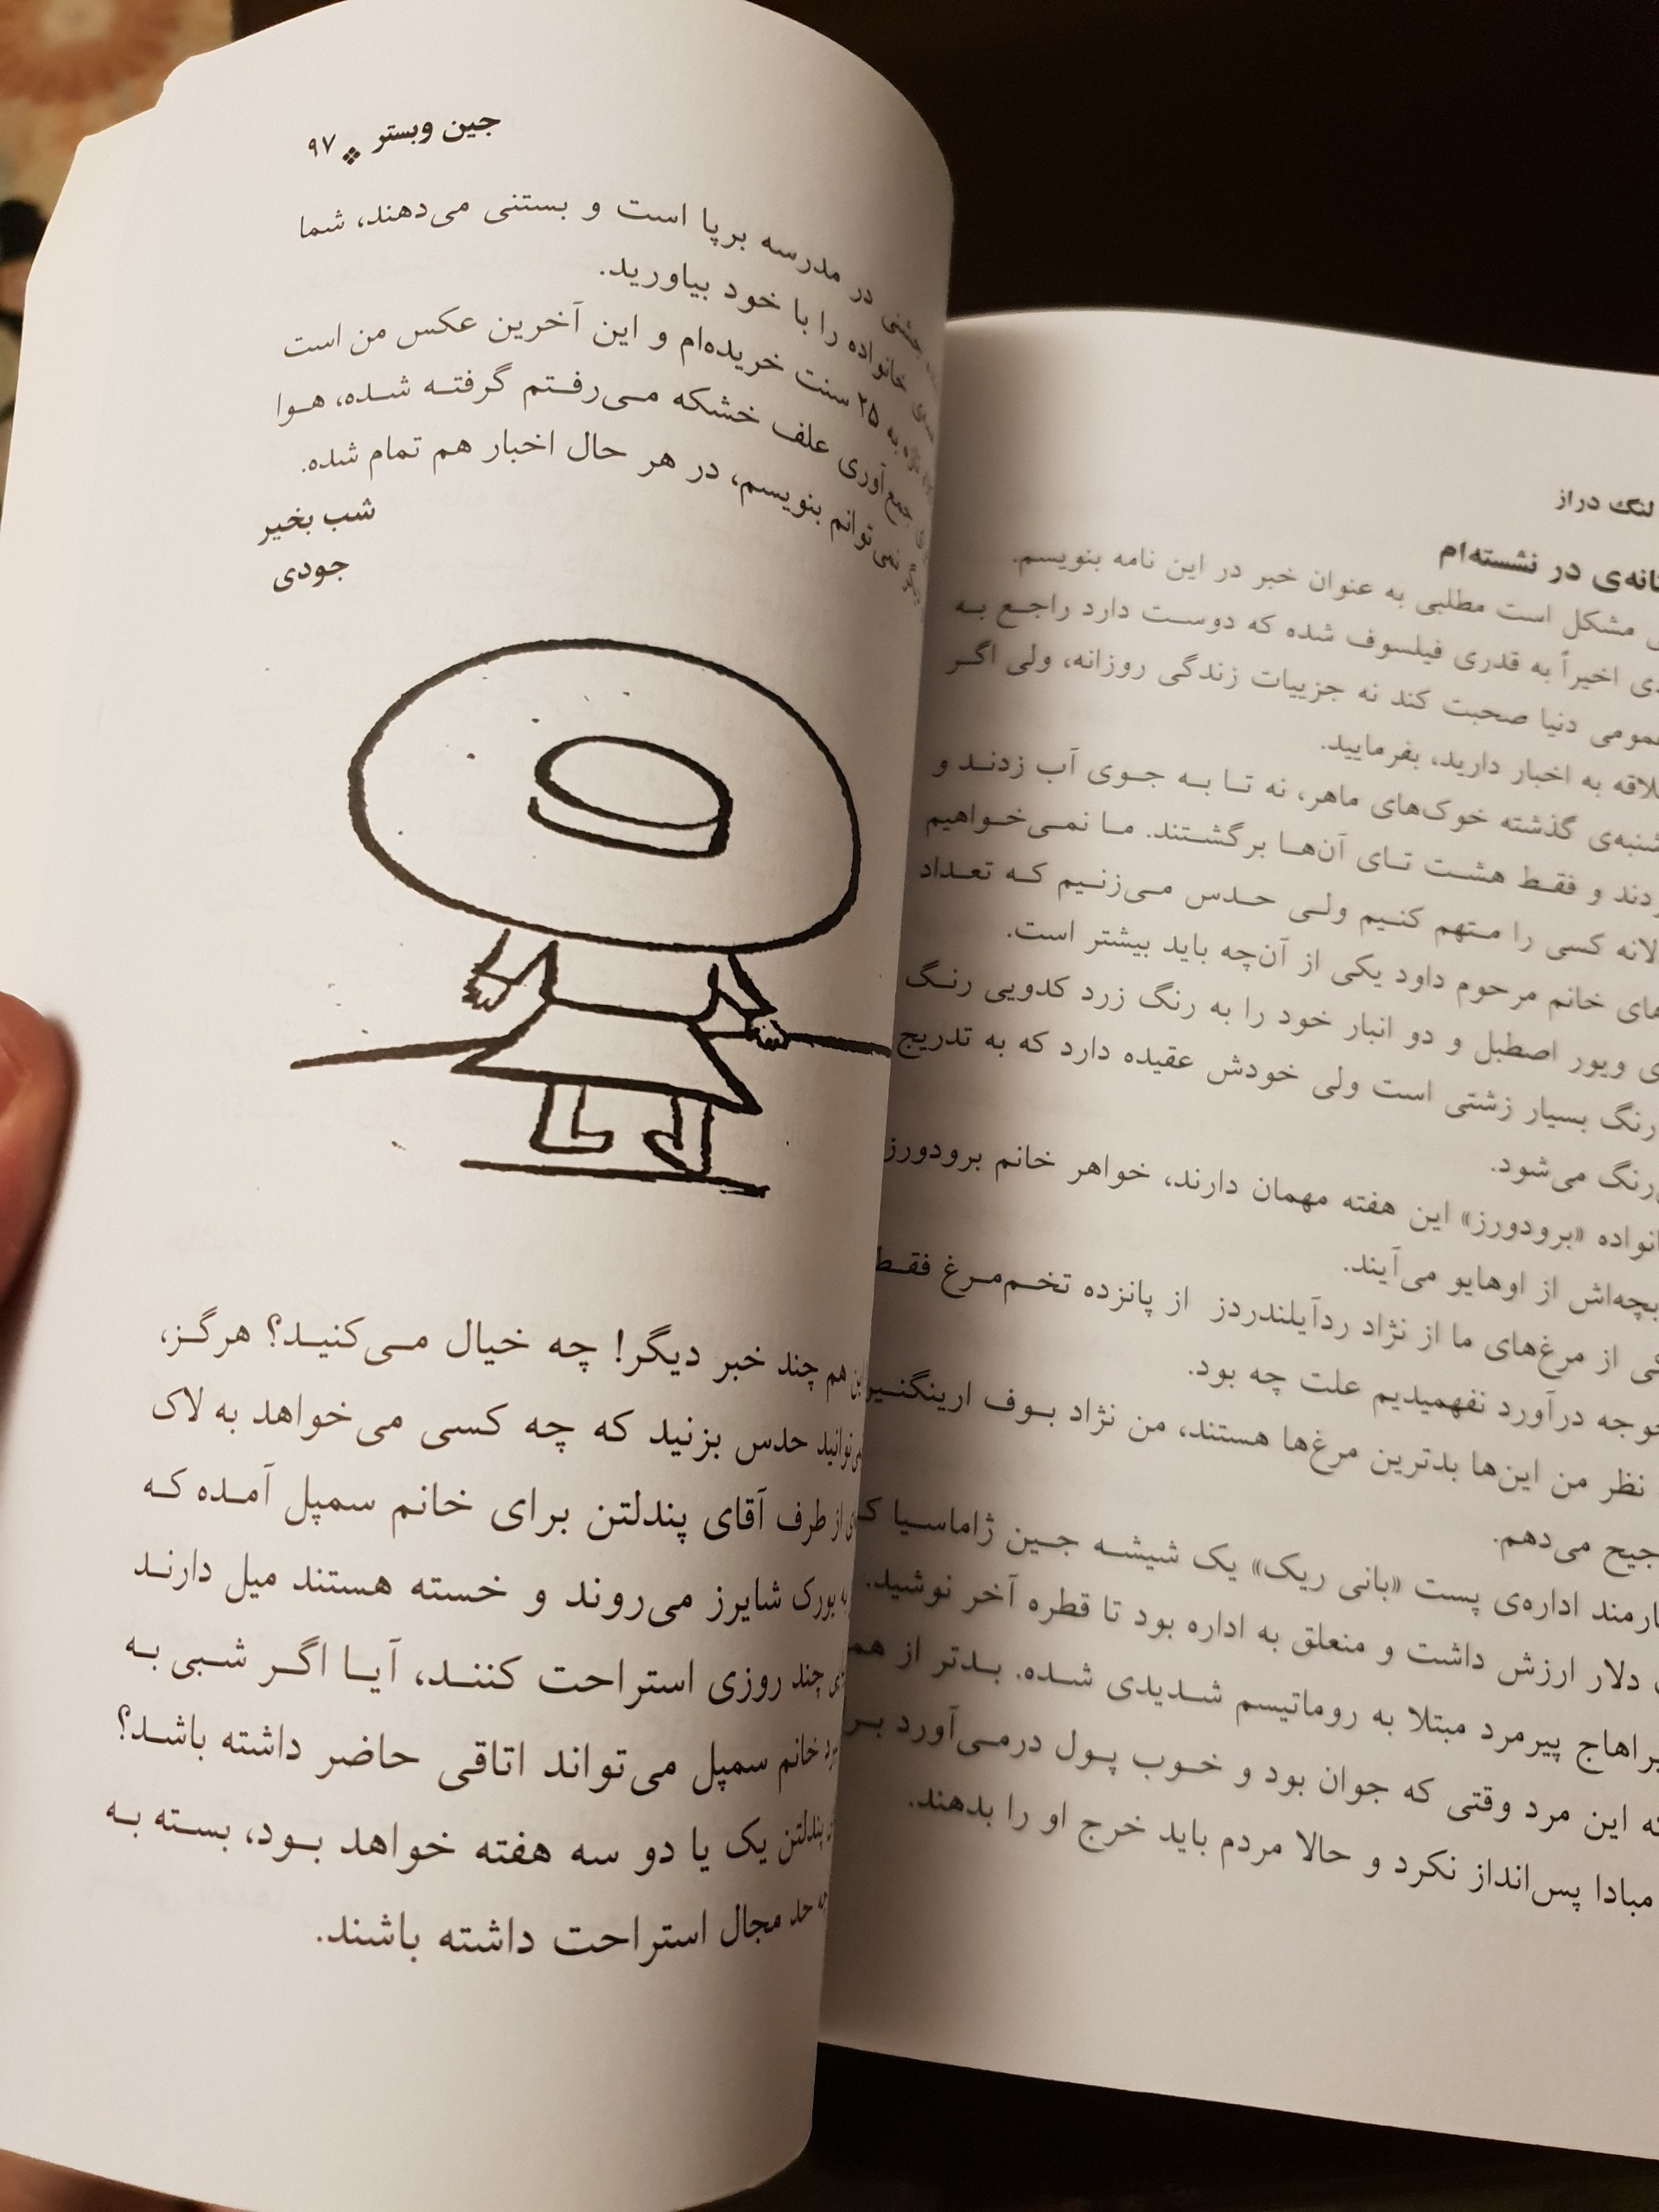 لنگ دراز
در نشسته‌ام
مشکل است مطلبی به عنوان خبر در این نامه بنویسم.
اخیراً به قدری فیلسوف شده که دوست دارد راجع به
دنیا صحبت کند نه جزییات زندگی روزانه، ولی اگر
به اخبار دارید، بفرمایید.
گذشته خوک‌های ماهر، نه تا به جوی آب زدند و
و فقط هشت تای آن‌ها برگشتند. ما نمی‌خواهیم
کسی را متهم کنیم ولی حدس می‌زنیم که تعداد
خانم مرحوم داود یکی از آن‌چه باید بیشتر است.
ویور اصطبل و دو انبار خود را به رنگ زرد کدویی رنگ
رنگ بسیار زشتی است ولی خودش عقیده دارد که به تدریج
رنگ می‌شود.
«برودورز» این هفته مهمان دارند، خواهر خانم برودورز
بچه‌اش از اوهایو می‌آیند.
از مرغ‌های ما از نژاد ردآیلندردز از پانزده تخم‌مرغ فقط
درآورد نفهمیدیم علت چه بود.
نظر من این‌ها بدترین مرغ‌ها هستند، من نژاد بوف
می‌دهم.
اداره‌ی پست «بانی ریک» یک شیشه جین ژاماسیا
دلار ارزش داشت و منعلق به اداره بود تا قطره آخر نوشید.
پیرمرد مبتلا به روماتیسم شدیدی شده. بدتر از
این مرد وقتی که جوان بود و خوب پول درمی‌آورد
مبادا پس‌انداز نکرد و حالا مردم باید خرج او را بدهند.
جین وبستر ❖ ۹۷
جشنی در مدرسه برپا است و بستنی می‌دهند، شما
خانواده را با خود بیاورید.
به ۲۵ سنت خریده‌ام و این آخرین عکس من است
جمع‌آوری علف خشکه می‌رفتم گرفته شده، هوا
نمی‌توانم بنویسم، در هر حال اخبار هم تمام شده.
شب بخیر
جودی
هم چند خبر دیگر! چه خیال می‌کنید؟ هرگز،
حدس بزنید که چه کسی می‌خواهد به لاک
از طرف آقای پندلتن برای خانم سمپل آمده که
بورک شایرز می‌روند و خسته هستند میل دارند
چند روزی استراحت کنند، آیا اگر شبی به
خانم سمپل می‌تواند اتاقی حاضر داشته باشد؟
پندلتن یک یا دو سه هفته خواهد بود، بسته به
چه حد مجال استراحت داشته باشند.